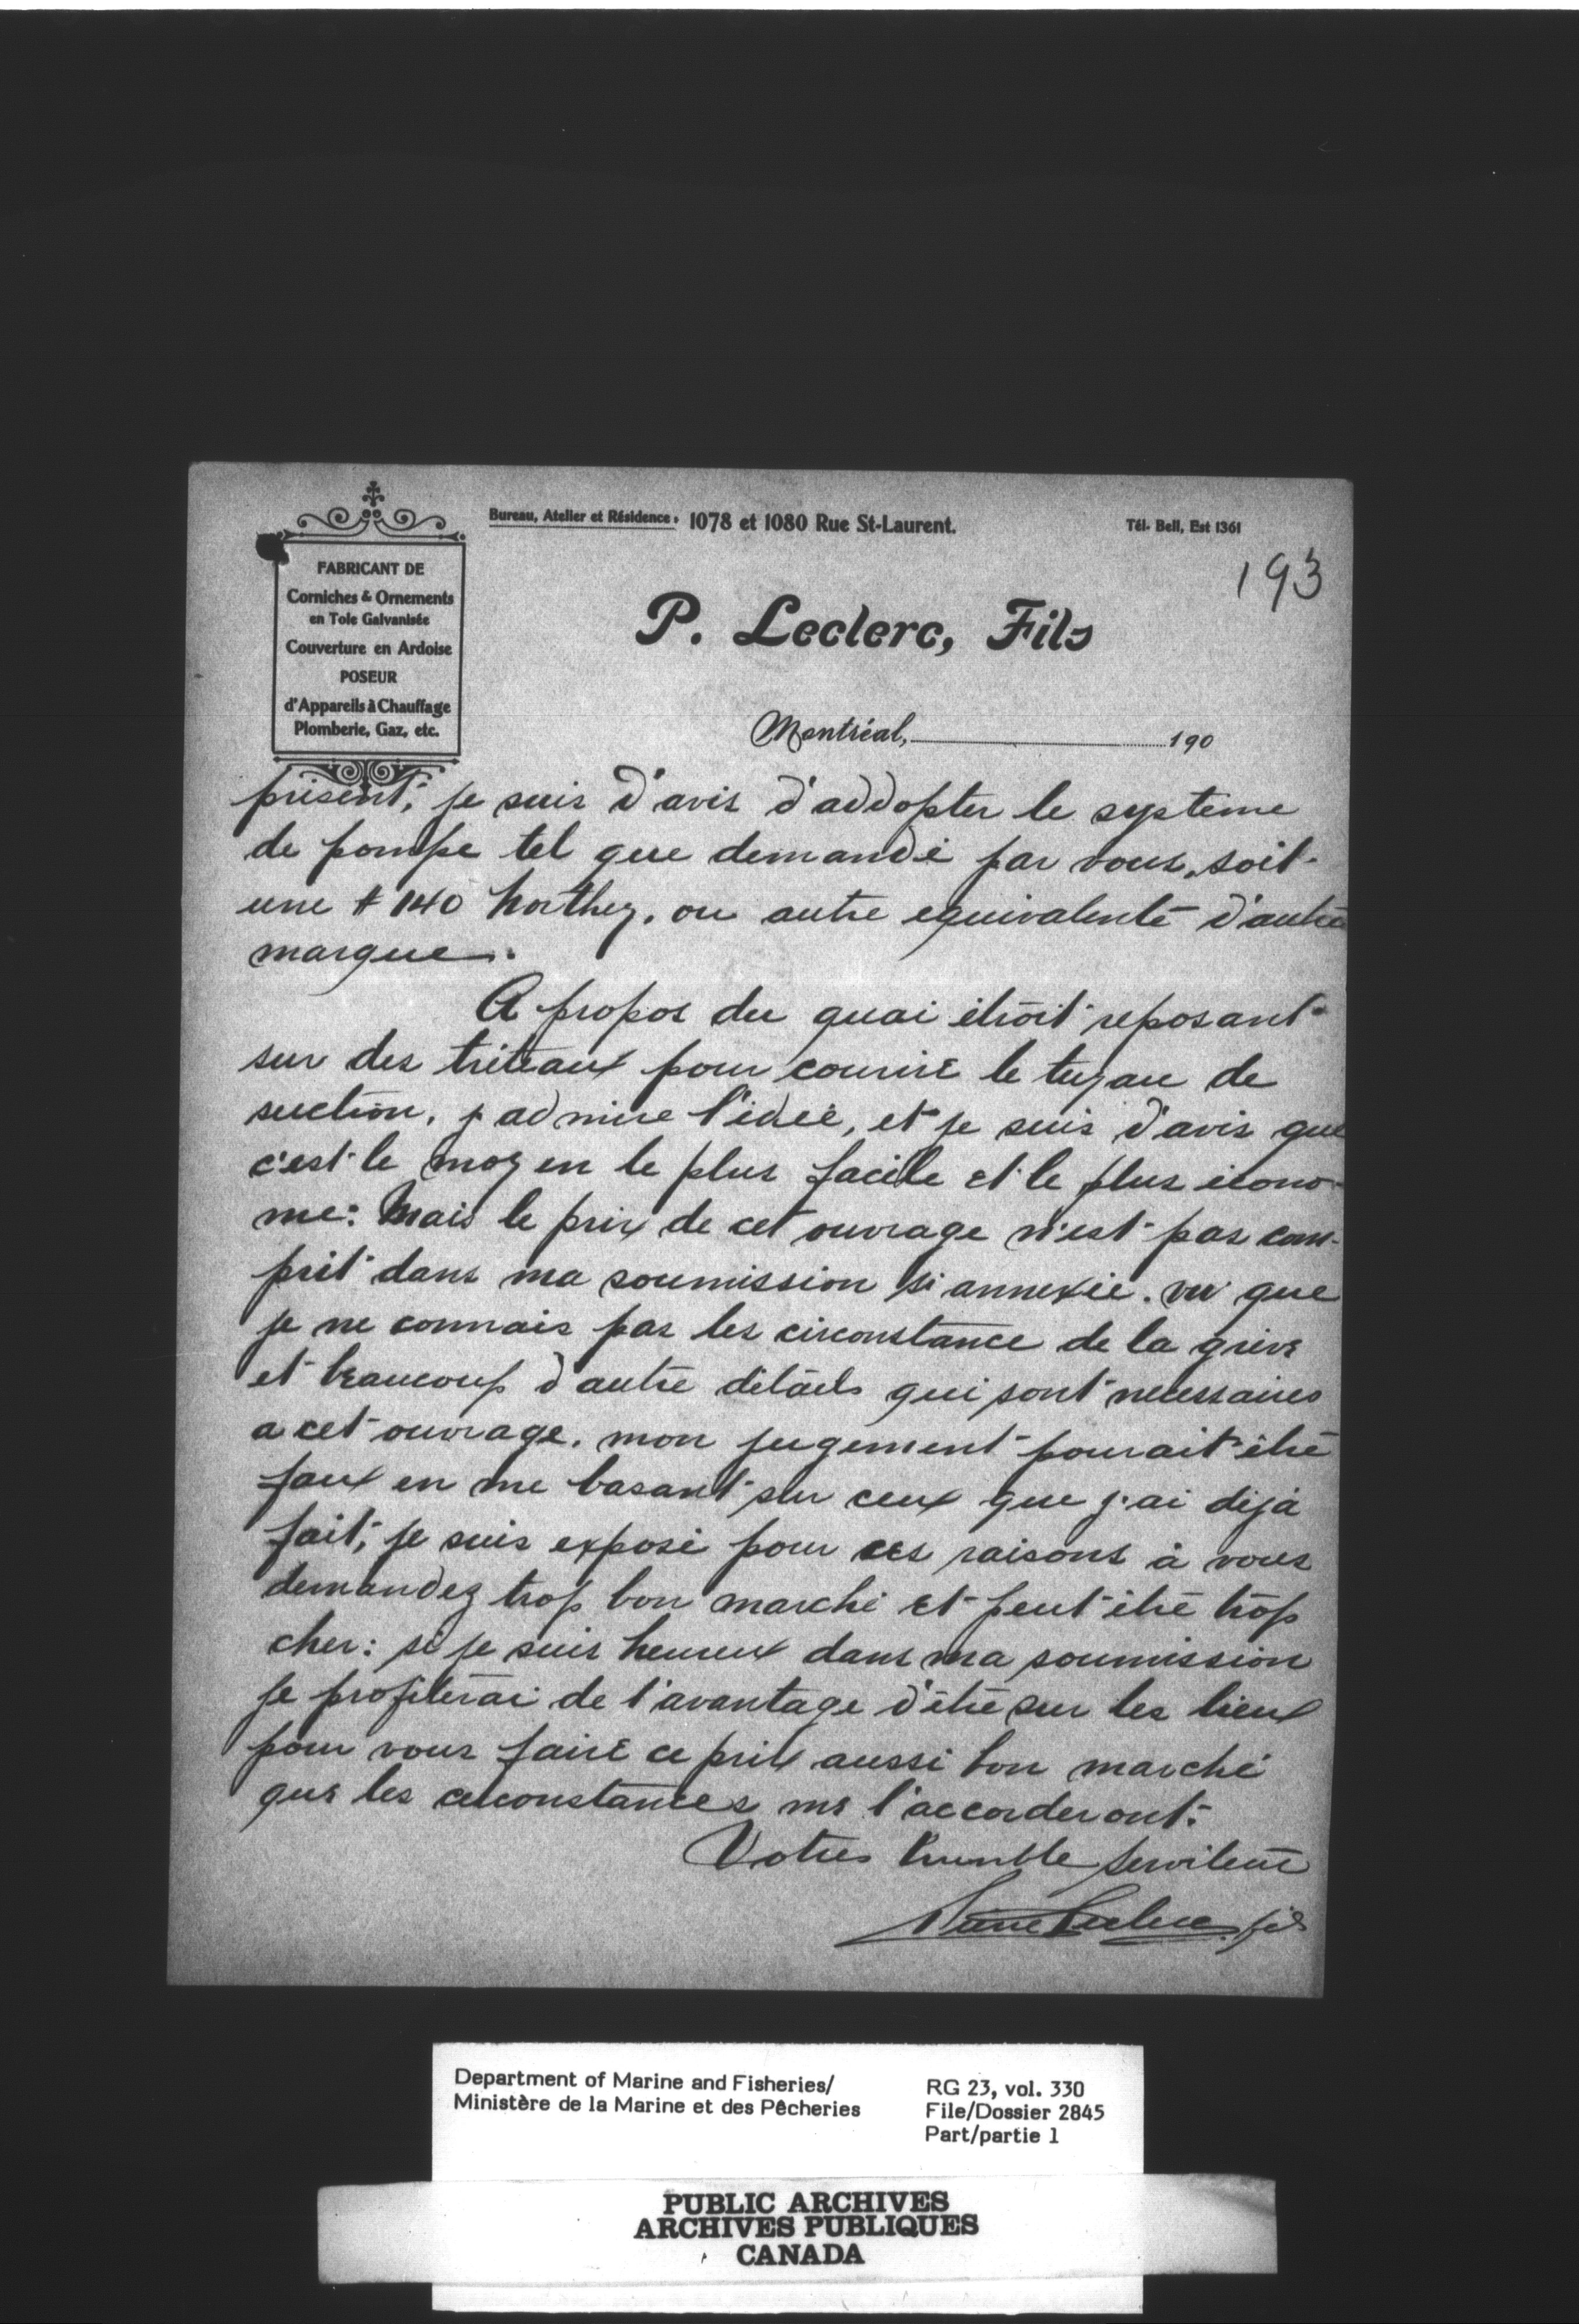 Bureau, Atelier et Résidence, 1078 et 1080 Rue St-Laurent.
Tél. Bell, Est 1361
193
FABRICANT DE
Corniches & Ornements
en Tole Galvanisée
Couverture en Ardoise
POSEUR
d'Appareils à Chauffage
Plomberie, Gaz, etc.
P. Leclerc, Fils
Montréal, 190
présent, je suis d'avis d'addopter le système
de pompe tel que demandé par vous, soit
une # 140 Northey, ou autre equivalente d'autre
marque.
A propos du quai étroit reposant
sur des tréteaux pour couvrire le tuyau de
suction, j admire l'idée, et je suis d'avis que
c'est le moyen le plus facile et le plus écono-
me: Mais le prix de cet ouvrage n'est pas com-
prit dans ma soumission si annexée. vu que
je ne connais pas les circonstance de la grève
et beaucoup d'autre détails qui sont necessaires
a cet ouvrage. mon jugement pourait être
faux en me basant sur ceux que j'ai déjà
fait, je suis exposé pour ces raisons à vous
demandez trop bon marché et peut être trop
cher: si je suis heureux dans ma soumission
je profiterai de l'avantage d'être sur les lieux
pour vous faire ce prix aussi bon marché
que les circonstances me l'accorderont.
Votres humble serviteure
Pierre Leclerc fils
Department of Marine and Fisheries/
Ministère de la Marine et des Pêcheries
RG 23, vol. 330
File/Dossier 2845
Part/partie 1
PUBLIC ARCHIVES
ARCHIVES PUBLIQUES
CANADA